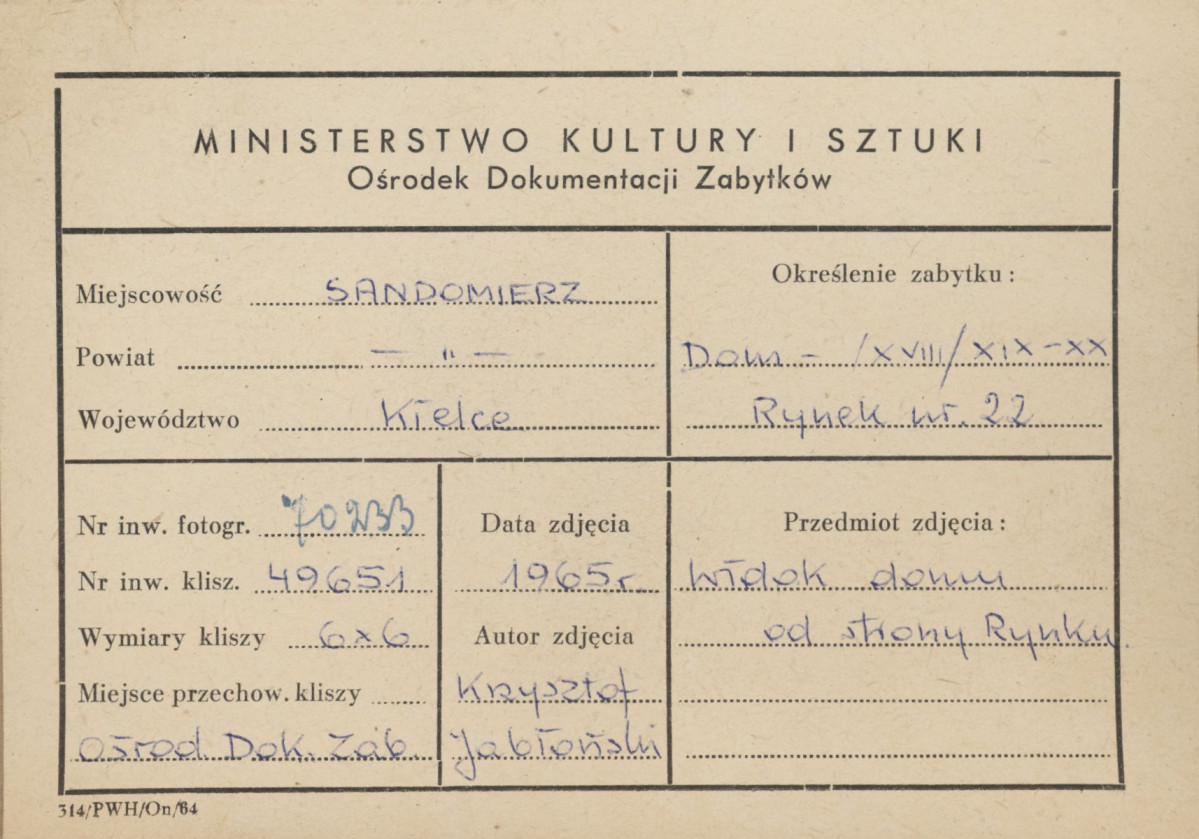 MINISTERSTWO KULTURY I SZTUKI
Ośrodek Dokumentacji Zabytków
Miejscowość SANDOMIERZ
Powiat — " —
Województwo Kielce
Określenie zabytku:
Dom - /XVIII/XIX-XX
Rynek nr. 22
Nr inw. fotogr. 70233
Nr inw. klisz. 49651
Wymiary kliszy 6x6
Miejsce przechow. kliszy
Ośrod Dok. Zab.
Data zdjęcia
1965r.
Autor zdjęcia
Krzysztof
Jabłoński
Przedmiot zdjęcia:
Widok domu
od strony Rynku.
314/PWH/On/64